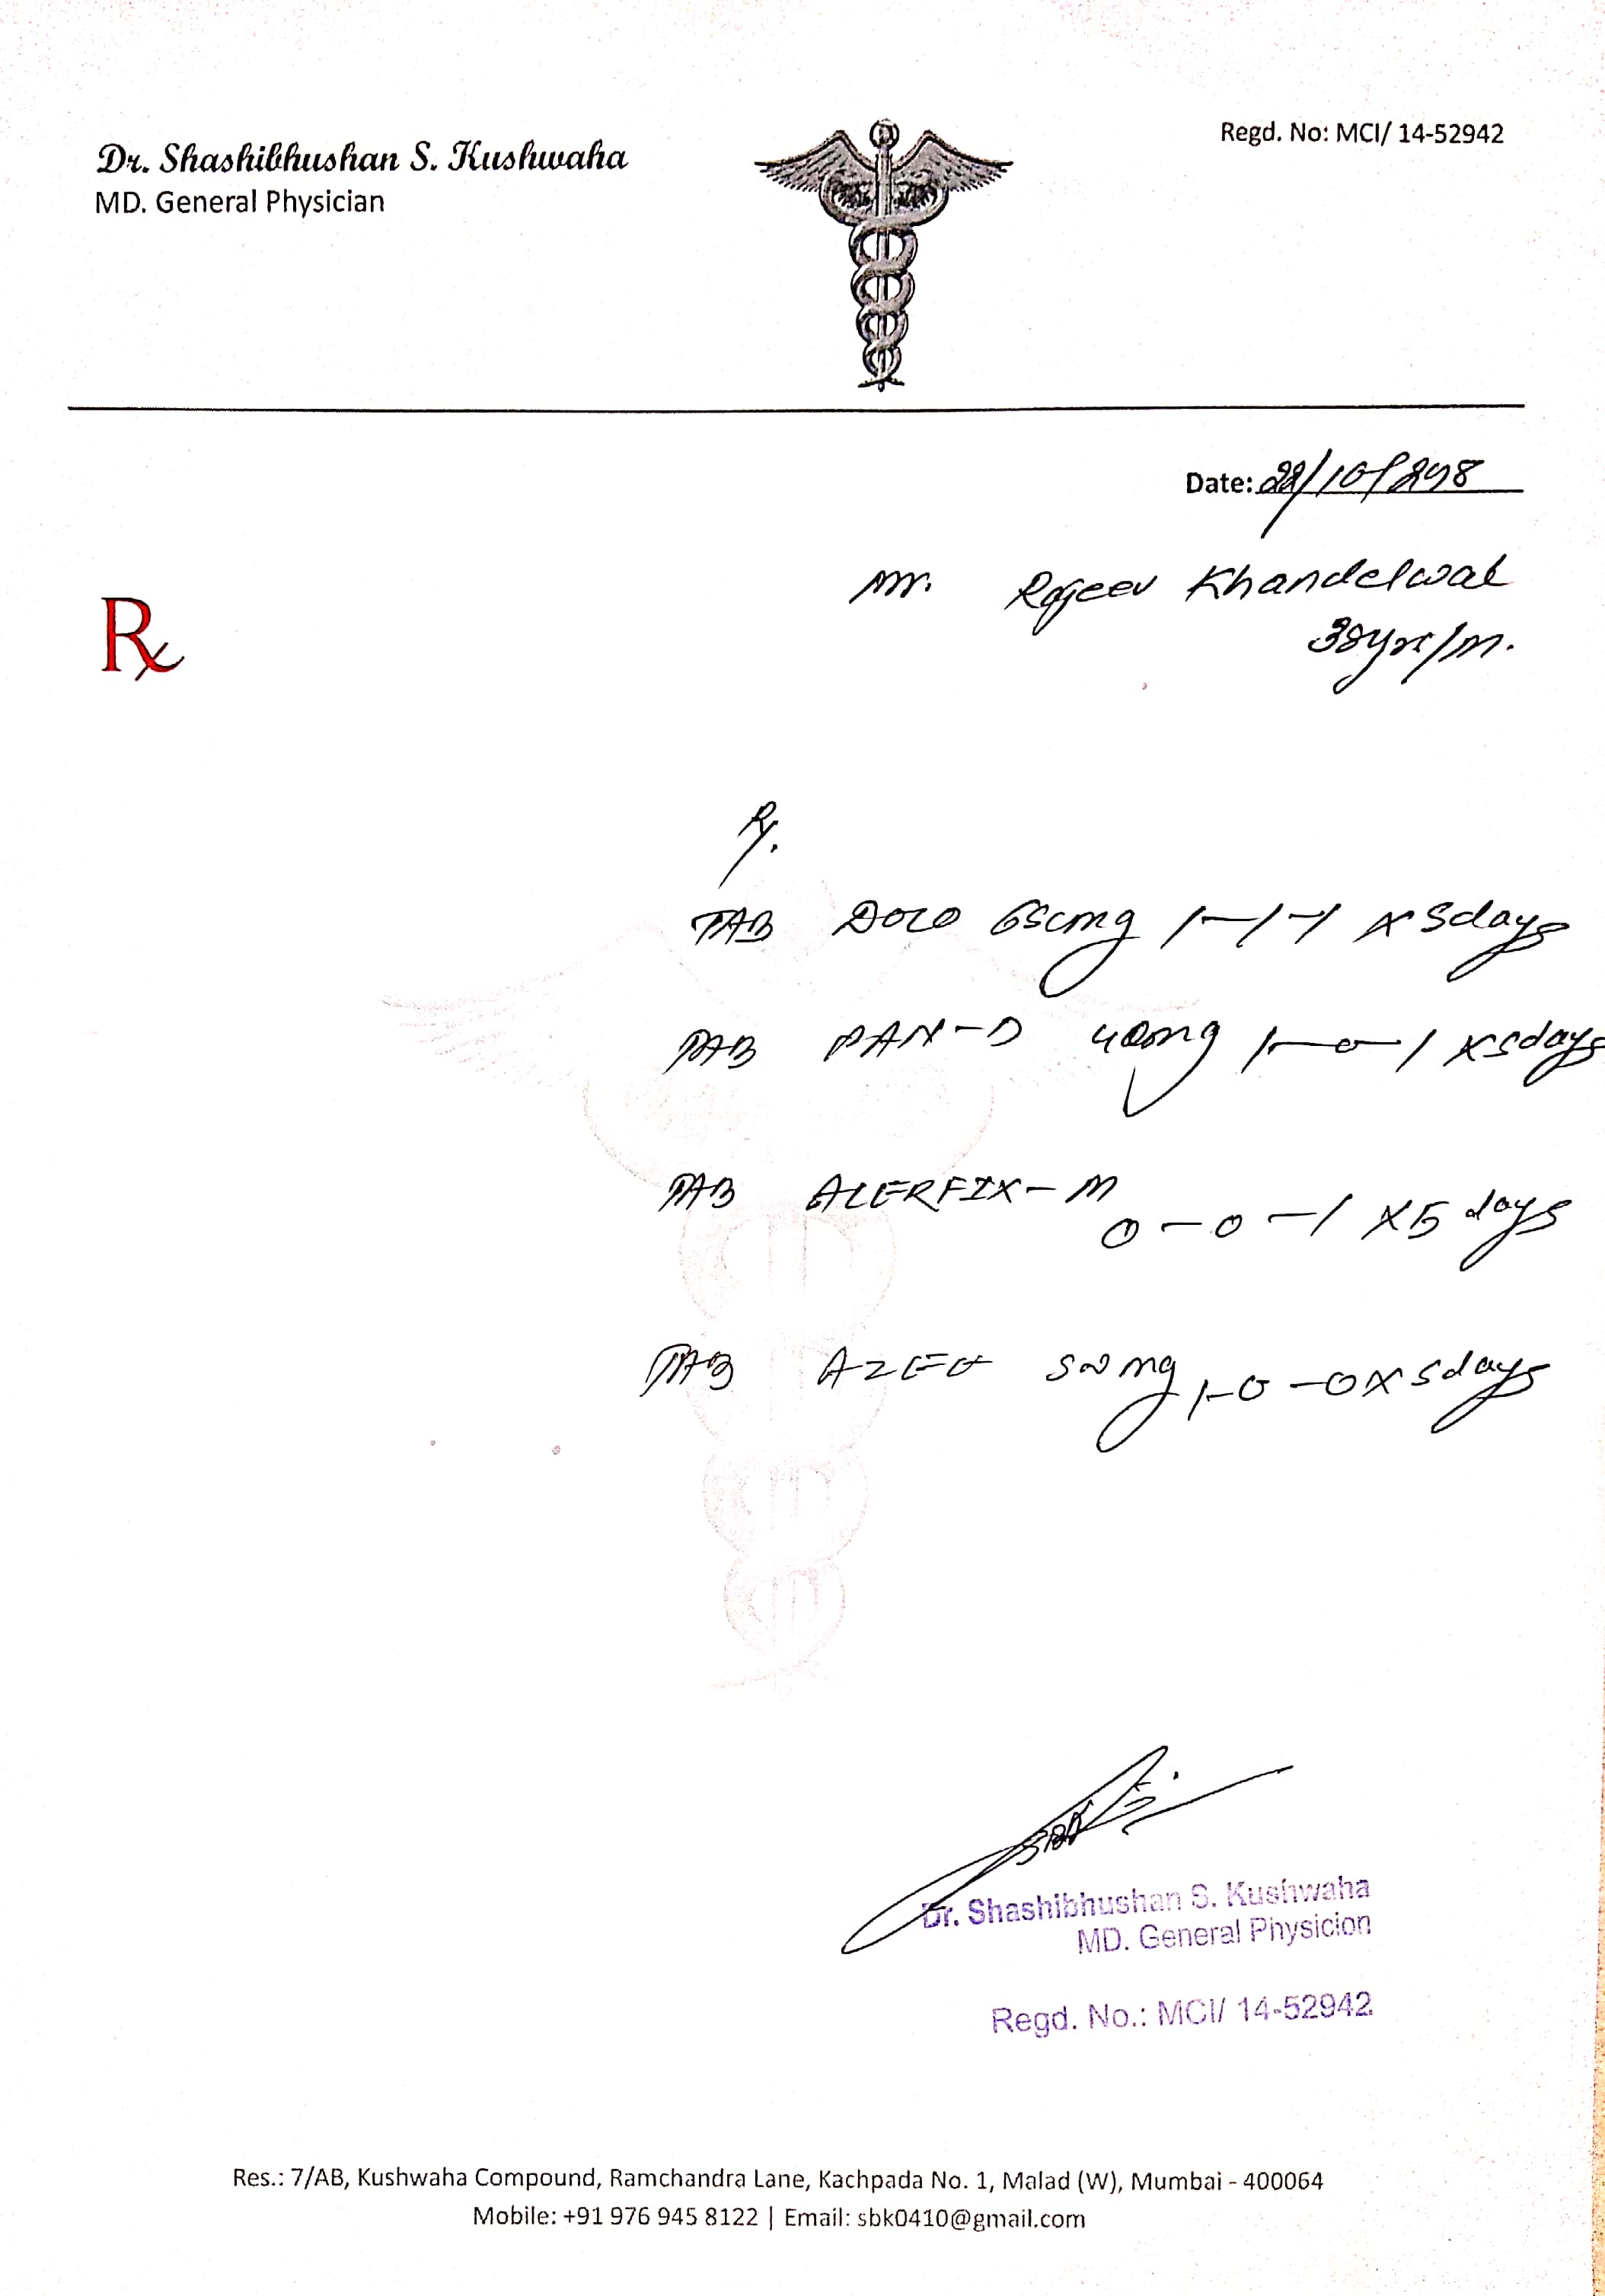 Dr. Shashibhushan S. Kushwaha
Regd. No: MCI/ 14-52942
MD. General Physician
Date: 22/10/2018
Mr. Rajeev Khandelwal
38yrs/M.
Rx
Rx.
TAB DOLO 650mg 1-1-1 x 5days
TAB PAN-D 40mg 1-0-1 x5days
TAB ALERFIX-M
0-0-1 x5 days
TAB AZEE 500mg 1-0-0x5days
Dr. Shashibhushan S. Kushwaha
MD. General Physicion
Regd. No.: MCI/ 14-52942
Res.: 7/AB, Kushwaha Compound, Ramchandra Lane, Kachpada No. 1, Malad (W), Mumbai - 400064
Mobile: +91 976 945 8122 | Email: sbk0410@gmail.com